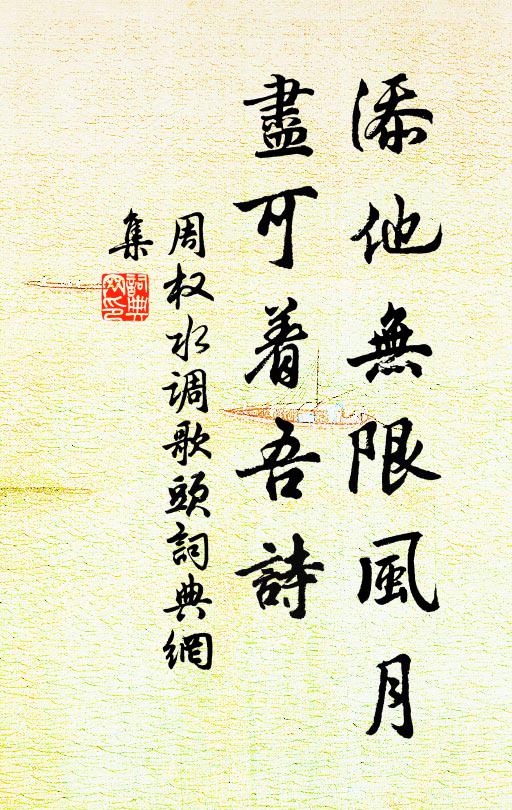 添他無限風月
盡可着吾詩
周权水调歌頭詞典網
集
詞典
网印